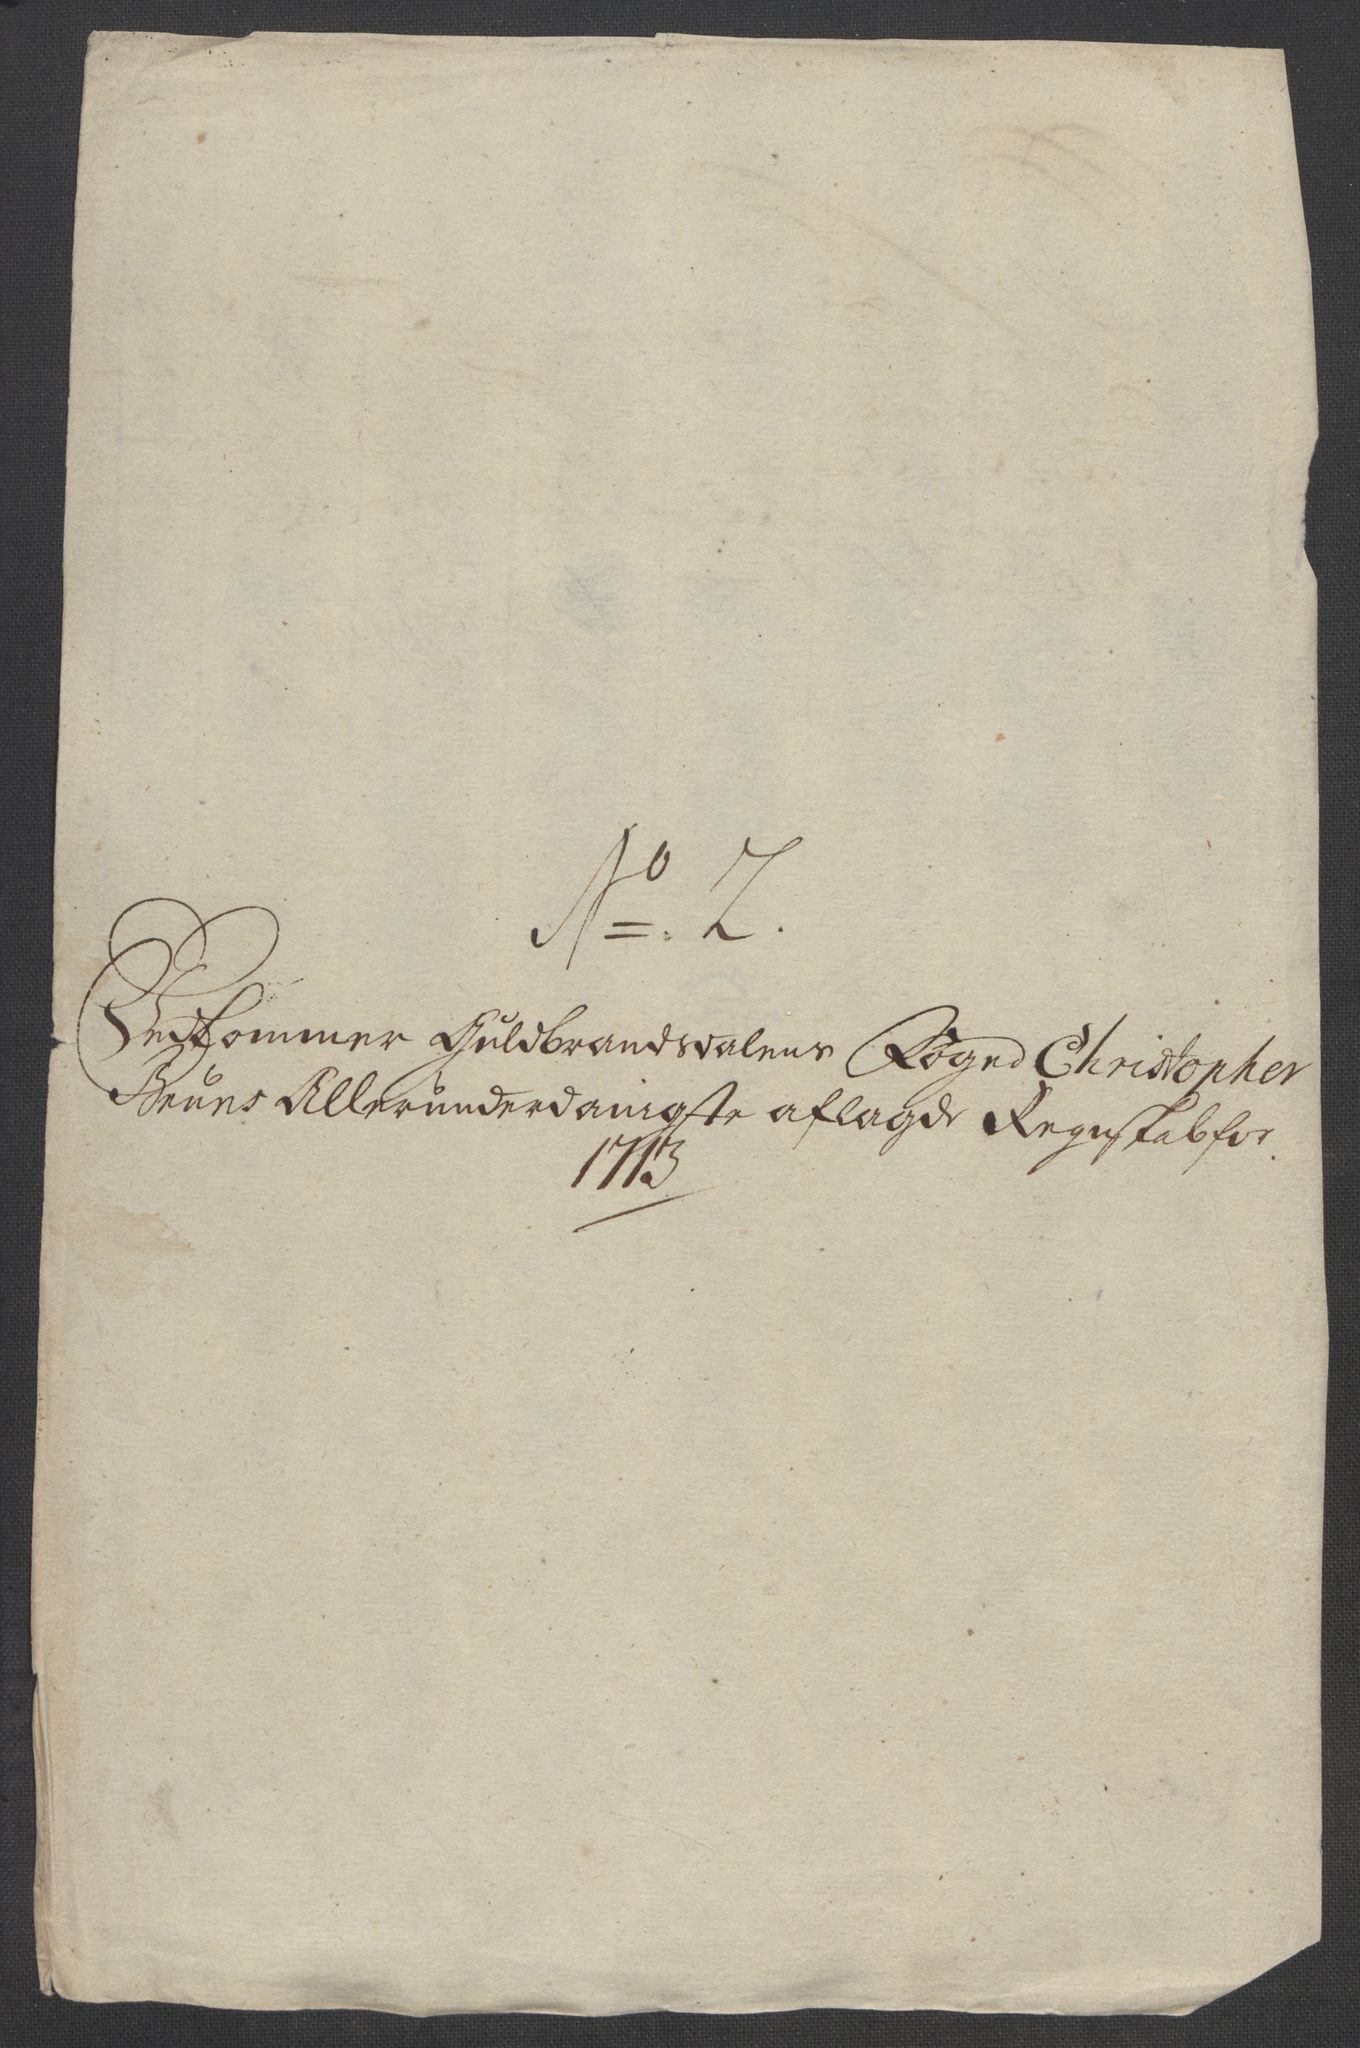 No. 2.
Vedkommer Guldbrandsdalens Foged Christopher
Bruns Allerunderdanigste aflagde Regnskab for
1713